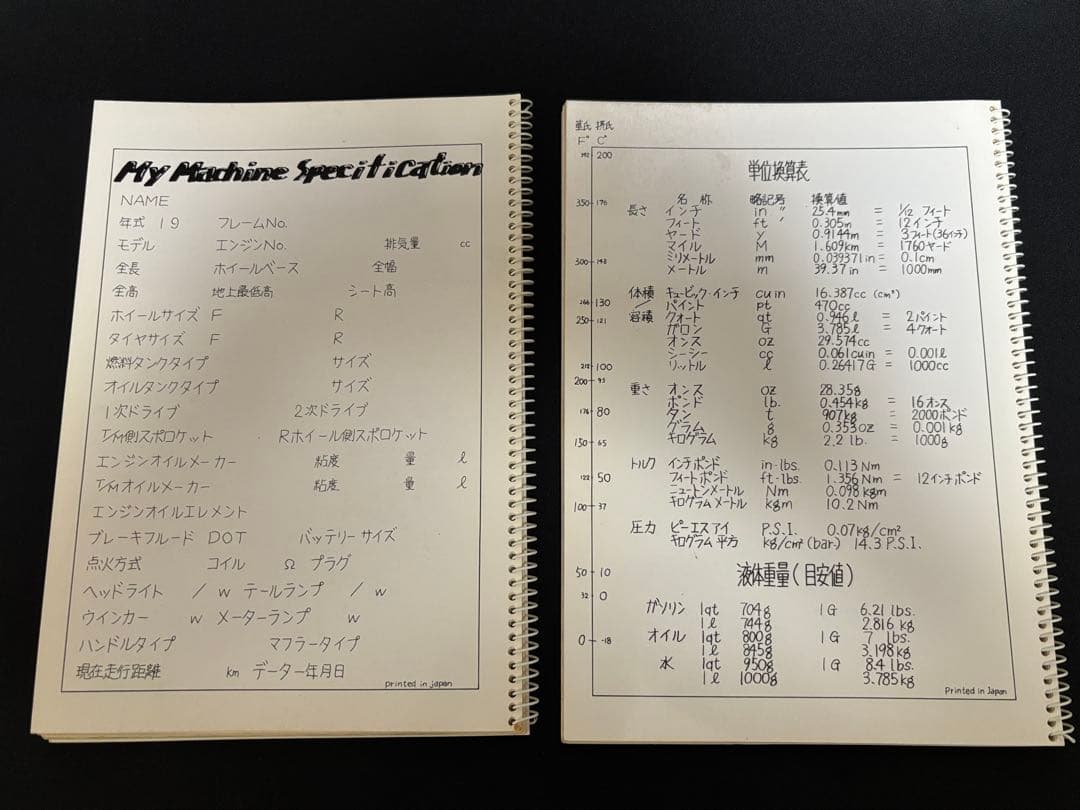 My Machine Specification
NAME
年式 19 フレームNo.
モデル エンジンNo. 排気量 cc
全長 ホイールベース 全幅
全高 地上最低高 シート高
ホイールサイズ F R
タイヤサイズ F R
燃料タンクタイプ サイズ
オイルタンクタイプ サイズ
1次ドライブ 2次ドライブ
T/M側スポロケット Rホイール側スポロケット
エンジンオイルメーカー 粘度 量 ℓ
T/Mオイルメーカー 粘度 量 ℓ
エンジンオイルエレメント
ブレーキフルード DOT バッテリーサイズ
点火方式 コイル Ω プラグ
ヘッドライト / w テールランプ / w
ウインカー w メーターランプ w
ハンドルタイプ マフラータイプ
現在走行距離 km データー年月日
printed in japan
華氏 摂氏
F° C°
392 200
350 176
300 148
266 130
250 121
212 100
200 93
176 80
150 65
122 50
100 37
50 10
32 0
0 -18
単位換算表
名称 略記号 換算値
長さ インチ in " 25.4mm = 1/12 フィート
フィート ft ' 0.305m = 12インチ
ヤード y 0.9144m = 3フィート(36インチ)
マイル M 1.609km = 1760ヤード
ミリメートル mm 0.03937in = 0.1cm
メートル m 39.37in = 1000mm
体積/容積 キュービック・インチ cuin 16.387cc (cm³)
パイント pt 470cc
クォート qt 0.946ℓ = 2パイント
ガロン G 3.785ℓ = 4クォート
オンス oz 29.574cc
シーシー cc 0.061cuin = 0.001ℓ
リットル ℓ 0.26417G = 1000cc
重さ オンス oz 28.35g
ポンド lb. 0.454kg = 16オンス
タン t 907kg = 2000ポンド
グラム g 0.353oz = 0.001kg
キログラム kg 2.2 lb. = 1000g
トルク インチポンド in-lbs. 0.113Nm
フィートポンド ft-lbs. 1.356Nm = 12インチポンド
ニュートンメートル Nm 0.098kgm
キログラムメートル kgm 10.2Nm
圧力 ピーエスアイ P.S.I. 0.07kg/cm²
キログラム平方 kg/cm²(bar) 14.3 P.S.I.
液体重量(目安値)
ガソリン 1qt 704g 1G 6.21 lbs.
1ℓ 744g 2.816 kg
オイル 1qt 800g 1G 7 lbs.
1ℓ 845g 3.198kg
水 1qt 950g 1G 8.4 lbs.
1ℓ 1000g 3.785kg
Printed in Japan